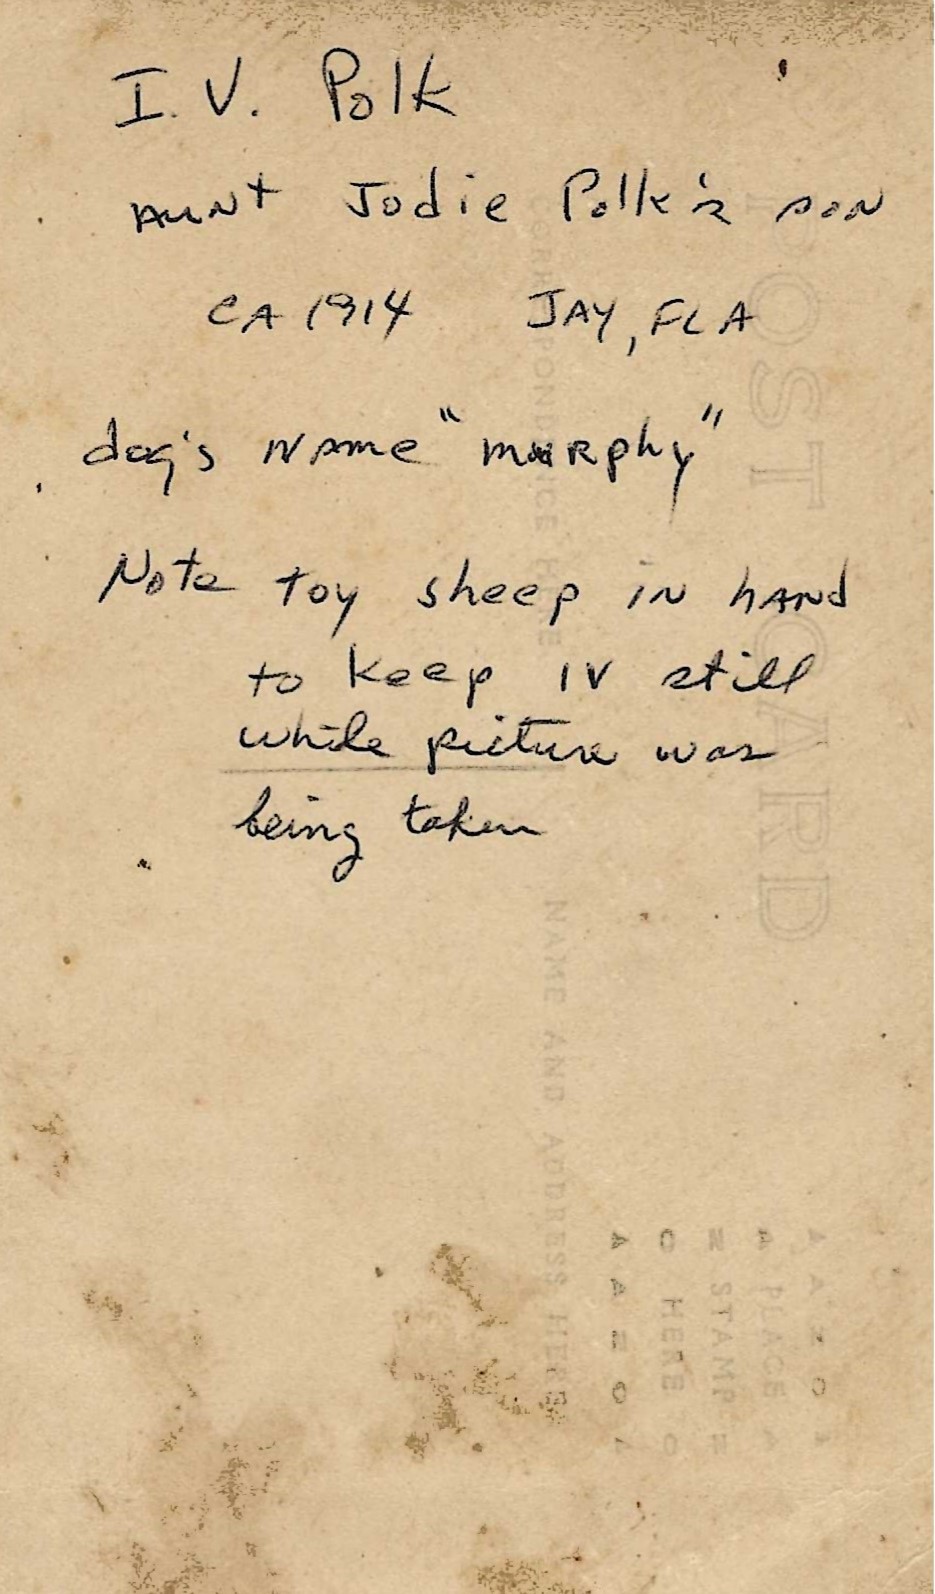 I.V. Polk
Aunt Jodie Polk's son
CA 1914 JAY, FLA
dog's name "murphy"
Note toy sheep in hand
to keep IV still
while picture was
being taken
POST CARD
CORRESPONDENCE HERE
NAME AND ADDRESS HERE
A A Z O A
A PLACE A
Z STAMP Z
O HERE O
A A Z O A